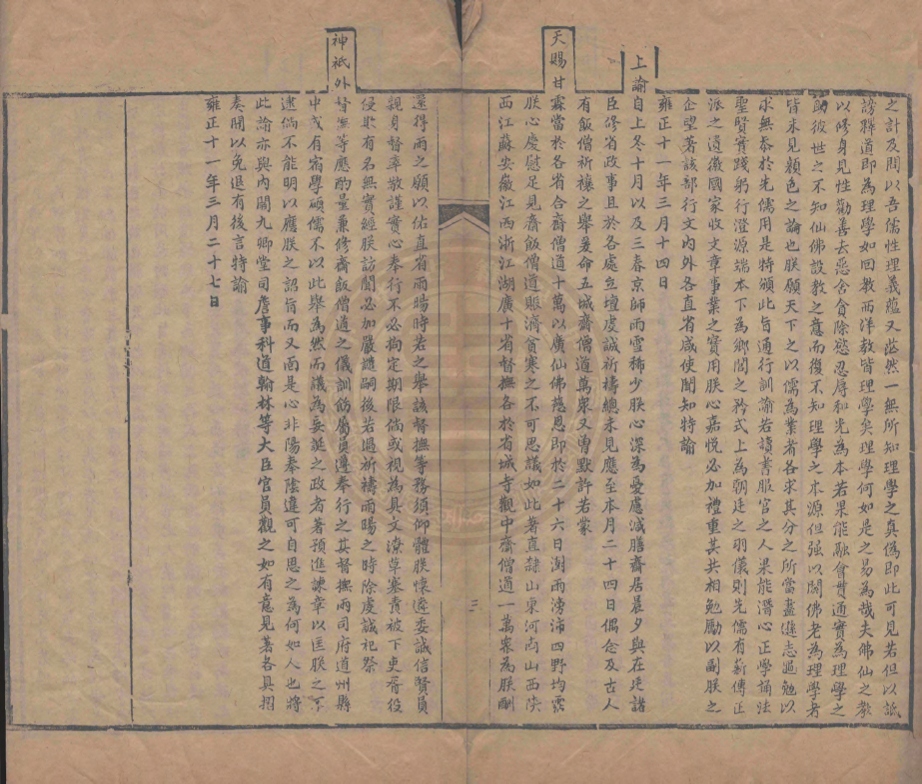 之計及問以吾儒性理義蘊又茫然一無所知理學之真偽即此可見若但以詆
謗釋道即為理學如回教而洋教皆理學矣理學何如是之易為哉夫佛仙之教
以修身見性勸善去惡舍貪除慾忍辱和光為本若果能融會貫通實為理學之
助彼世之不知仙佛設教之意而復不知理學之本源但强以闢佛老為理學者
皆未見顏色之論也朕願天下之以儒為業者各求其分之所當盡遜志黽勉以
求無忝於先儒用是特頒此旨通行訓諭若讀書服官之人果能潛心正學誦法
聖賢實踐躬行澄源端本下為鄉閭之矜式上為朝廷之羽儀則先儒有薪傳正
派之遺徽國家收文章事業之實用朕心嘉悅必加禮重其共相勉勵以副朕之
企望著該部行文內外各直省咸使聞知特諭
雍正十一年三月十四日
上諭自上冬十月以及三春京師雨雪稀少朕心深為憂慮減膳齋居晨夕與在廷諸
臣修省政事且於各處立壇虔誠祈禱總未見應至本月二十四日偶念及古人
有飯僧祈禳之舉爰命五城齋僧道萬衆又曾默許若蒙
天賜甘霖當於各省合齋僧道十萬以廣仙佛慈恩即於二十六日澍雨滂沛四野均霑
朕心慶慰足見齋飯僧道賑濟貧寒之不可思議如此著直隸山東河南山西陝
西江蘇安徽江西浙江湖廣十省督撫各於省城寺觀中齋僧道一萬衆為朕酬
三
還得雨之願以佑直省雨暘時若之舉該督撫等務須仰體朕懷遴委誠信賢員
親身督率敬謹實心奉行不必拘定期限倘或視為具文潦草塞責被下吏胥役
侵欺有名無實經朕訪聞必加嚴譴嗣後若遇祈禱雨暘之時除虔誠祀祭
神祇外督撫等應酌量兼修齋飯僧道之儀訓飭屬員遵奉行之其督撫兩司府道州縣
中或有宿學碩儒不以此舉為然而議為妄誕之政者著預進諫章以匡朕之不
逮倘不能明以應朕之詔旨而又面是心非陽奉陰違可自思之為何如人也將
此諭亦與內閣九卿堂司詹事科道翰林等大臣官員觀之如有意見著各具摺
奏聞以免退有後言特諭
雍正十一年三月二十七日